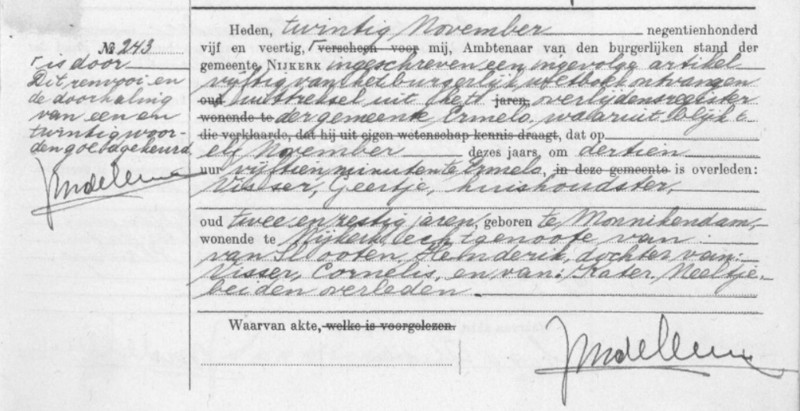 № 243
r is door
Dit renvooi en
de doorhaling
van een en
twintig woor-
den goedgekeurd
Heden, twintig November negentienhonderd
vijf en veertig, r verscheen voor mij, Ambtenaar van den burgerlijken stand der
gemeente NIJKERK ingeschreven een ingevolge artikel
vijftig van het burgerlijk wetboek ontvangen
oud uittreksel uit het jaren, overlijdensregister
wonende te der gemeente Ermelo, waaruit blijkt
die verklaarde, dat hij uit eigen wetenschap kennis draagt, dat op
elf November dezes jaars, om dertien
uur vijftien minuten te Ermelo, in deze gemeente is overleden:
Visser, Geertje, huishoudster,
oud twee en zestig jaren, geboren te Monnikendam,
wonende te Nijkerk, echtgenoote van
van Slooten, Henderik, dochter van:
Visser, Cornelis, en van: Kater, Neeltje
beiden overleden.
Waarvan akte, welke is voorgelezen.